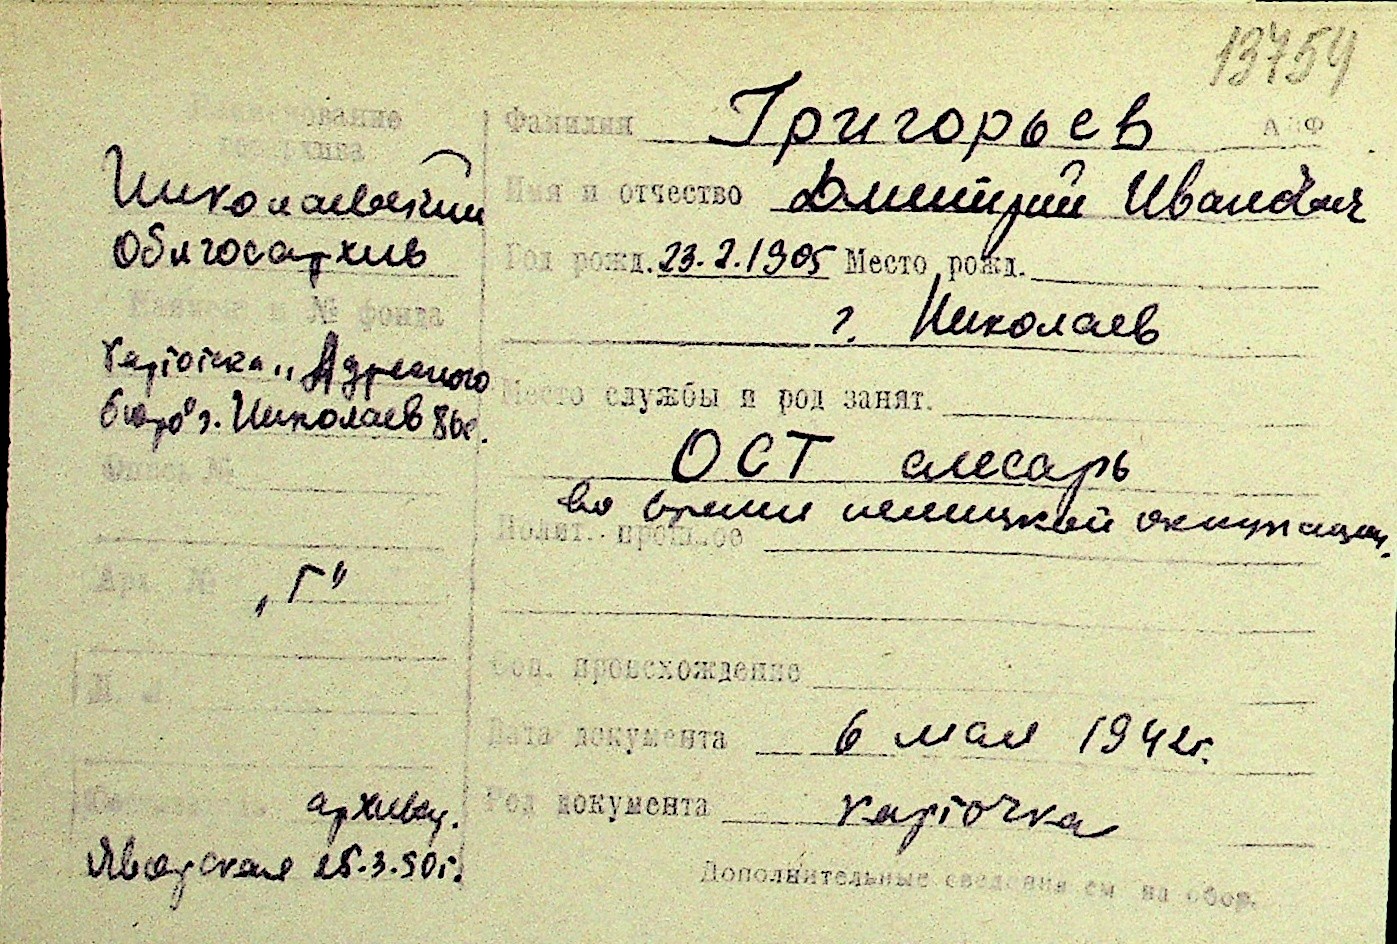 13754
Наименование
госархива
Николаевский
Облгосархив
№ фонда
картотека „Адресного
бюро" г. Николаев
Опись №
Арх. №
„Г"
архивец.
25.3.50г.
Фамилия Григорьев
Имя и отчество Дмитрий Иванович
Год рожд. 23.2.1905 Место рожд.
г. Николаев
Место службы и род занят.
ОСТ слесарь
во время немецкой оккупации.
Полит. прошлое
Соц. происхождение
Дата документа 6 мая 1942г.
Род документа карточка
Дополнительные сведения см на обор.